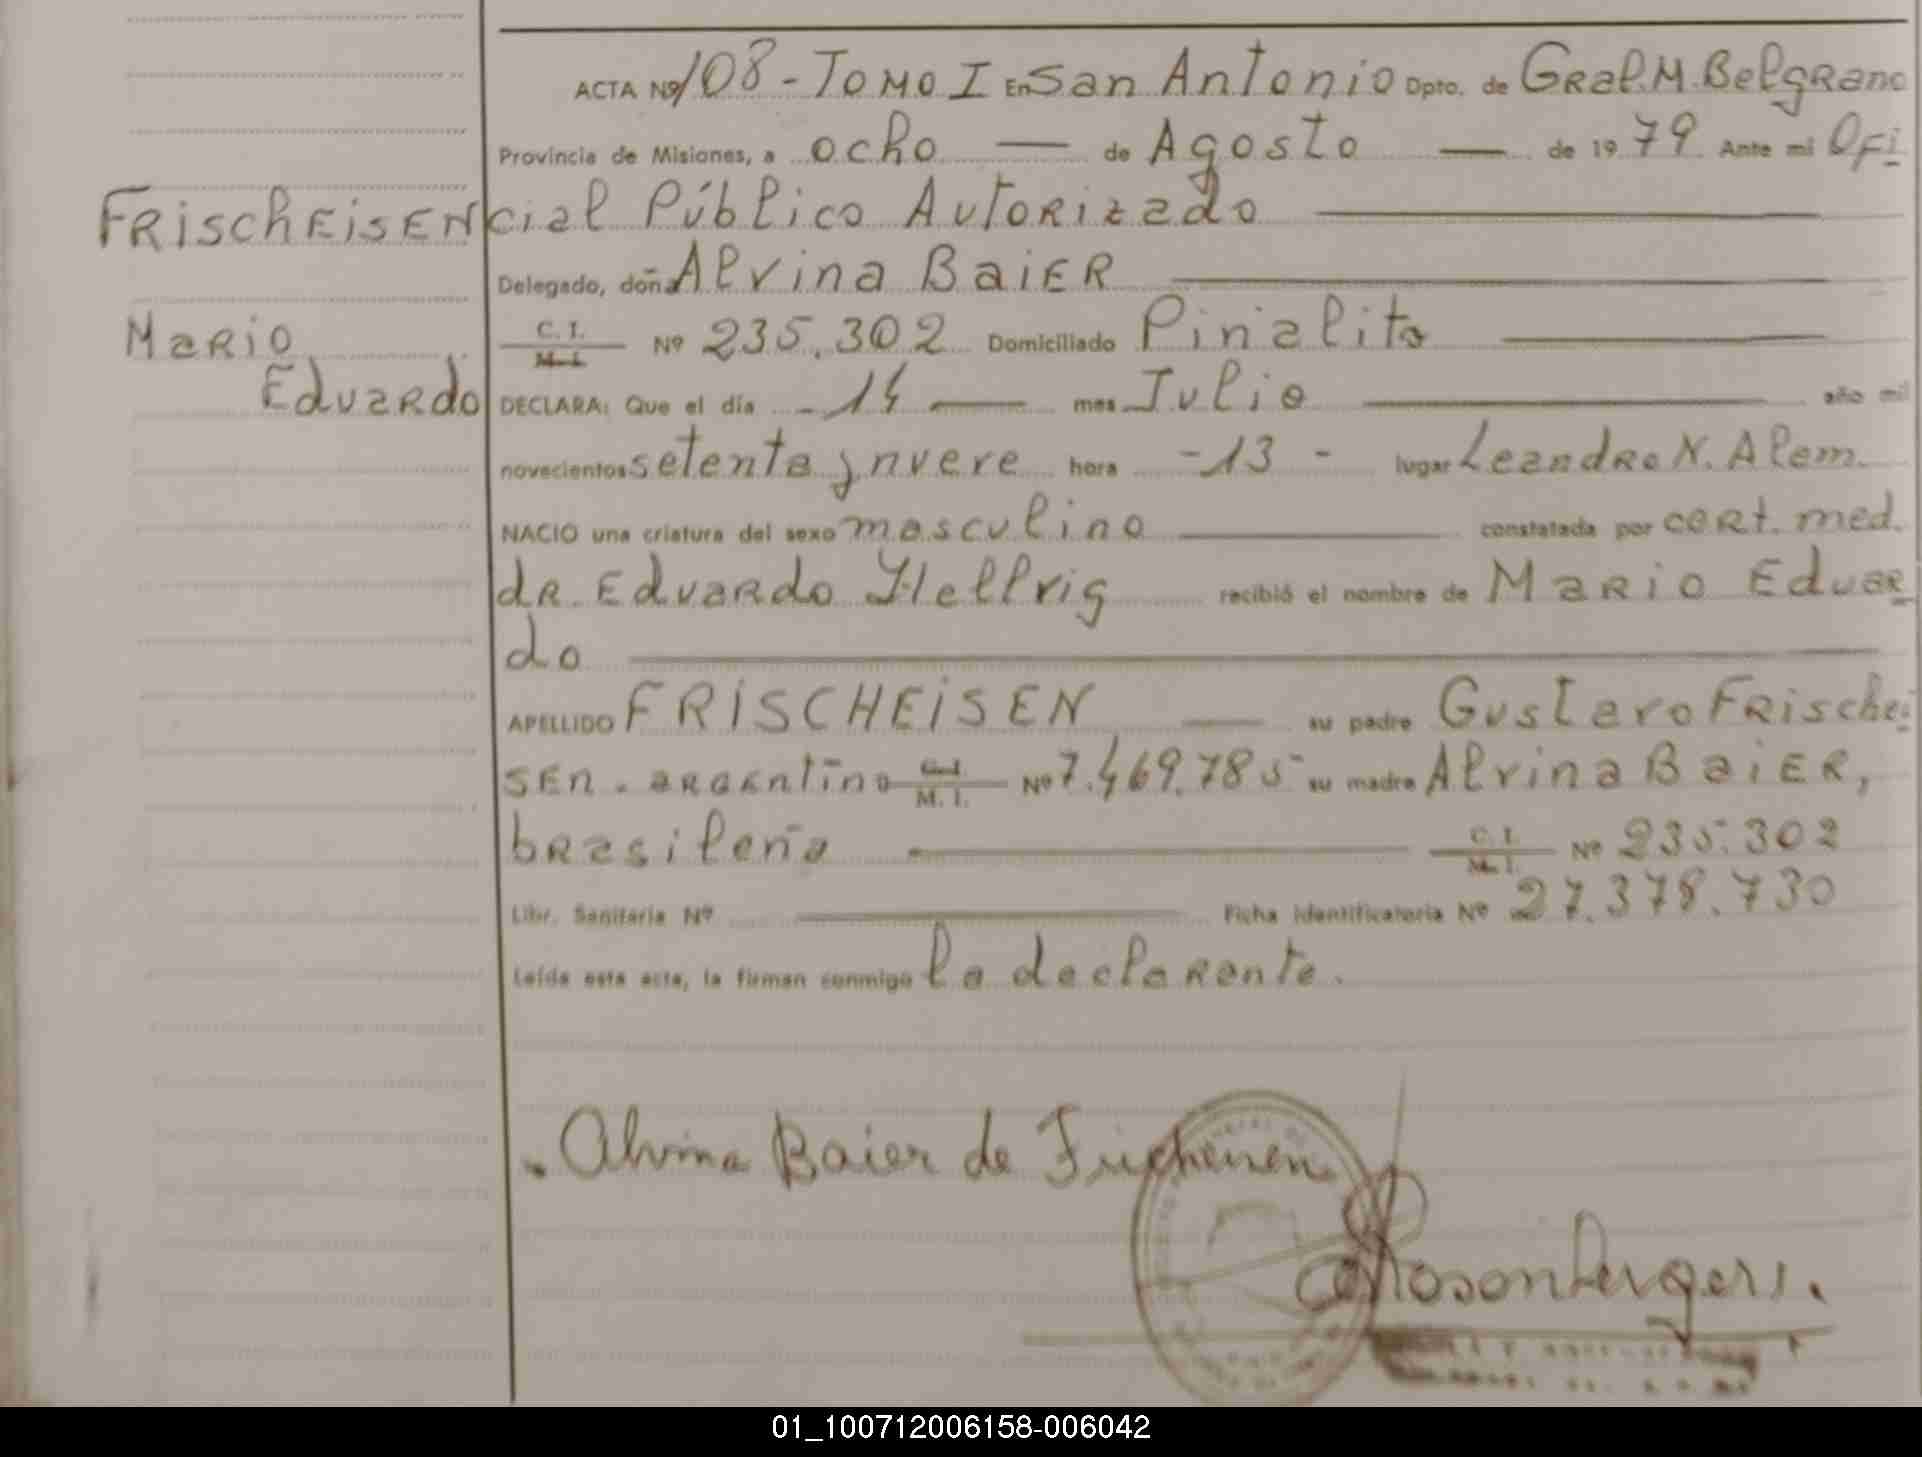 ACTA Nº 108 - Tomo I En San Antonio Dpto. de Gral. M. Belgrano
Provincia de Misiones, a ocho — de Agosto — de 19 79 Ante mi Ofi
cial Público Autorizado
Delegado, doña Alvina Baier
C. I. M. I. Nº 235.302 Domiciliado Piñalito
DECLARA: Que el día - 14 — mes Julio año mil
novecientos setenta y nueve hora - 13 - lugar Leandro N. Alem.
NACIO una criatura del sexo masculino constatada por cert. med.
dr. Eduardo Hellvig recibió el nombre de Mario Eduar
do
APELLIDO FRISCHEISEN su padre Gustavo Frischei
sen - argentino C. I. M. I. Nº 7.469.785 su madre Alvina Baier,
brasileña C. I. M. I. Nº 235.302
Libr. Sanitaria Nº Ficha identificatoria Nº 27.378.730
Leída esta acta, la firman conmigo la declarante.
Frischeisen
Mario
Eduardo
Alvina Baier de Fricheisen
01_100712006158-006042